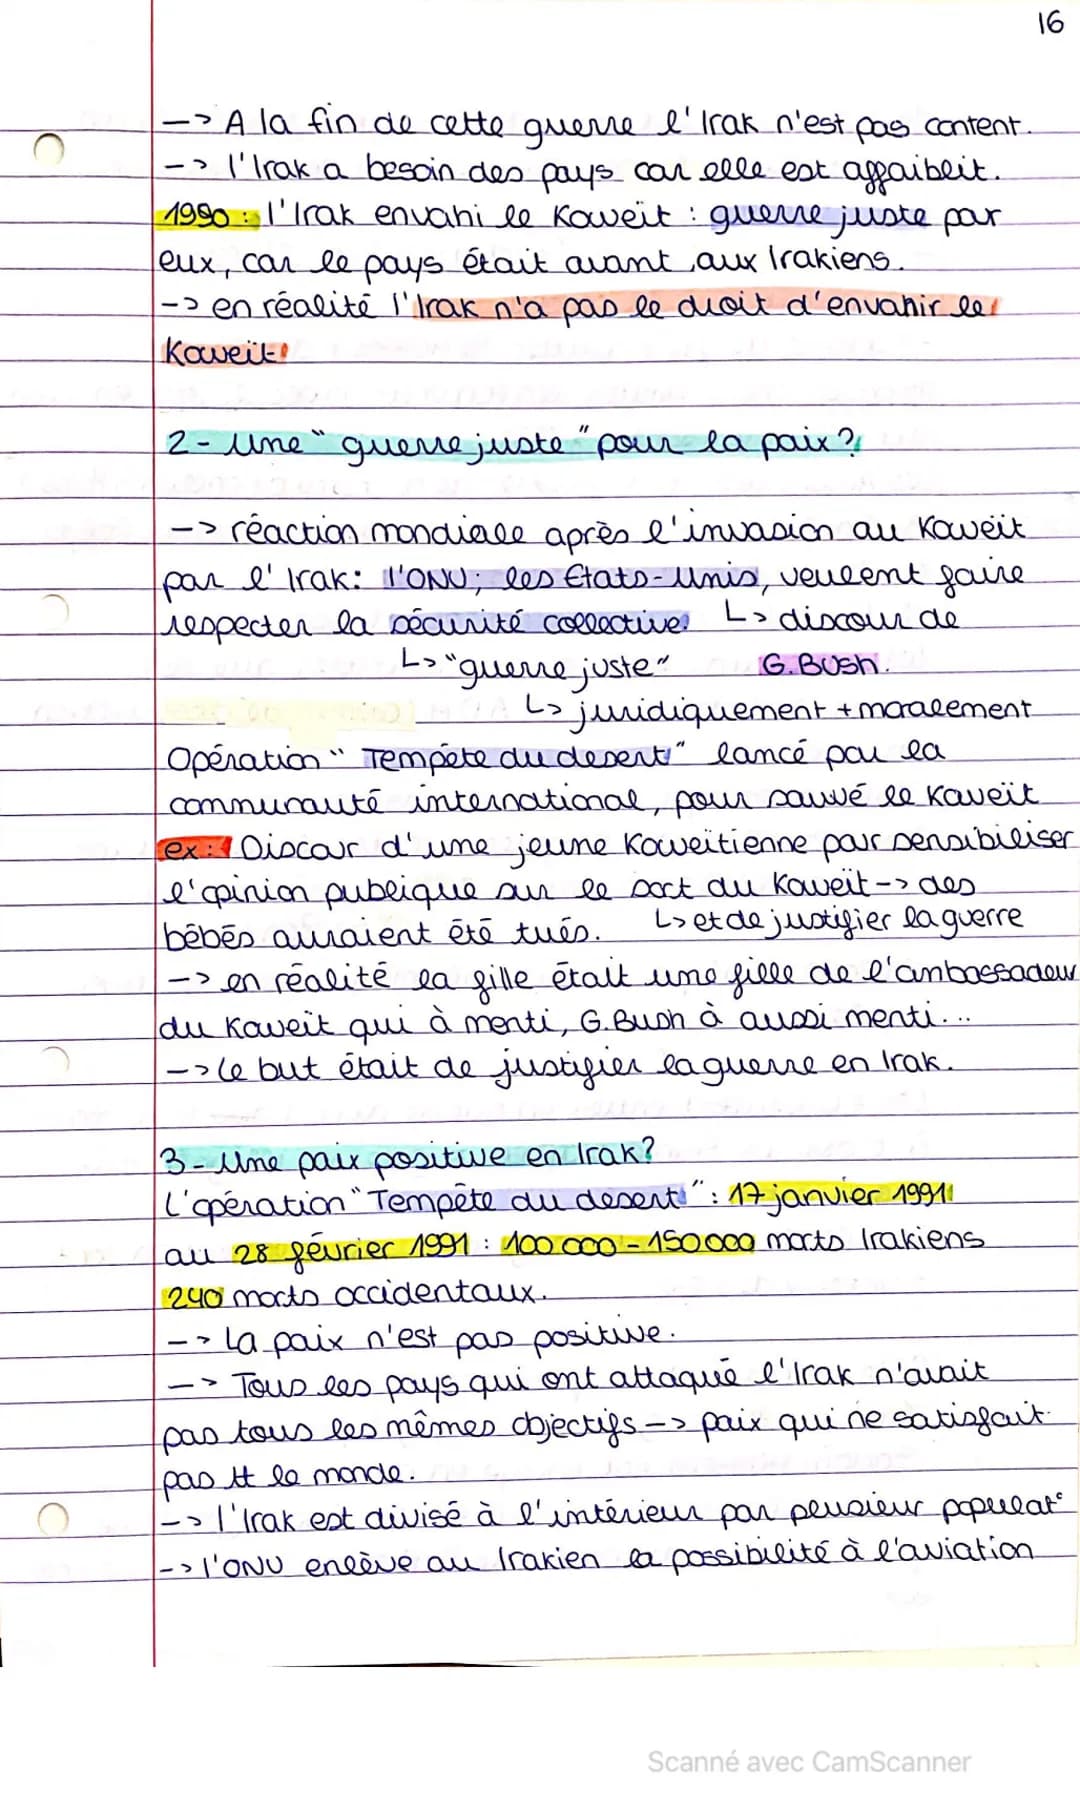 16
-> A la fin de cette guerre l'Irak n'est pas content.
-> l'Irak a besoin des pays car elle est affaibleit.
1990 : l'Irak envahi le Koweït : guerre juste par
eux, car le pays était avant aux Irakiens.
-> en réalité l'Irak n'a pas le droit d'envahir le
Koweït
2 - Une "guerre juste" pour la paix ?
-> réaction mondiale après l'invasion au Koweït
par l'Irak: l'ONU; les États-Unis, veulent faire
respecter la sécurité collective. ↳ discour de
↳ "guerre juste" G.Bush.
↳ juridiquement + moralement
Opération "Tempête du desert" lancé par la
communauté international, pour sauvé le Kaweït
ex : Discour d'une jeune Koweïtienne pour sensibiliser
l'opinion publique sur le sort du Koweït -> des
bébés auraient été tués. ↳ et de justifier la guerre
-> en réalité la fille était une fille de l'ambassadeur
du Koweït qui à menti, G.Bush à aussi menti...
-> le but était de justifier la guerre en Irak.
3 - Une paix positive en Irak?
L'opération "Tempête du desert" : 17 janvier 1991
au 28 février 1991 : 100 000 - 150 000 morts Irakiens
240 morts occidentaux.
-> La paix n'est pas positive.
-> Tous les pays qui ont attaqué l'Irak n'avait
pas tous les mêmes objectifs -> paix qui ne satisfait
pas tt le monde.
-> l'Irak est divisé à l'intérieur par plusieur populat°
-> l'ONU enlève au Irakien la possibilité à l'aviation
Scanné avec CamScanner